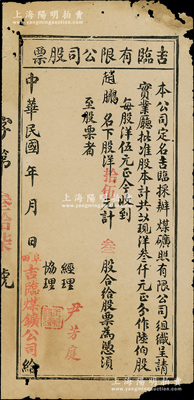 上海陽明
吉臨有限公司股票
本公司定名吉臨採辦煤礦股有限公司組織呈請
實業廳批准股本計共收現洋叁仟元正分作陸伯股
每股洋伍元正今收到
趙鵬名下股洋拾伍元計叁股合給股票為憑須
至股票者
經理 尹芳庭
協理
中華民國 年 月 日
吉臨煤鑛公司給
字第 號